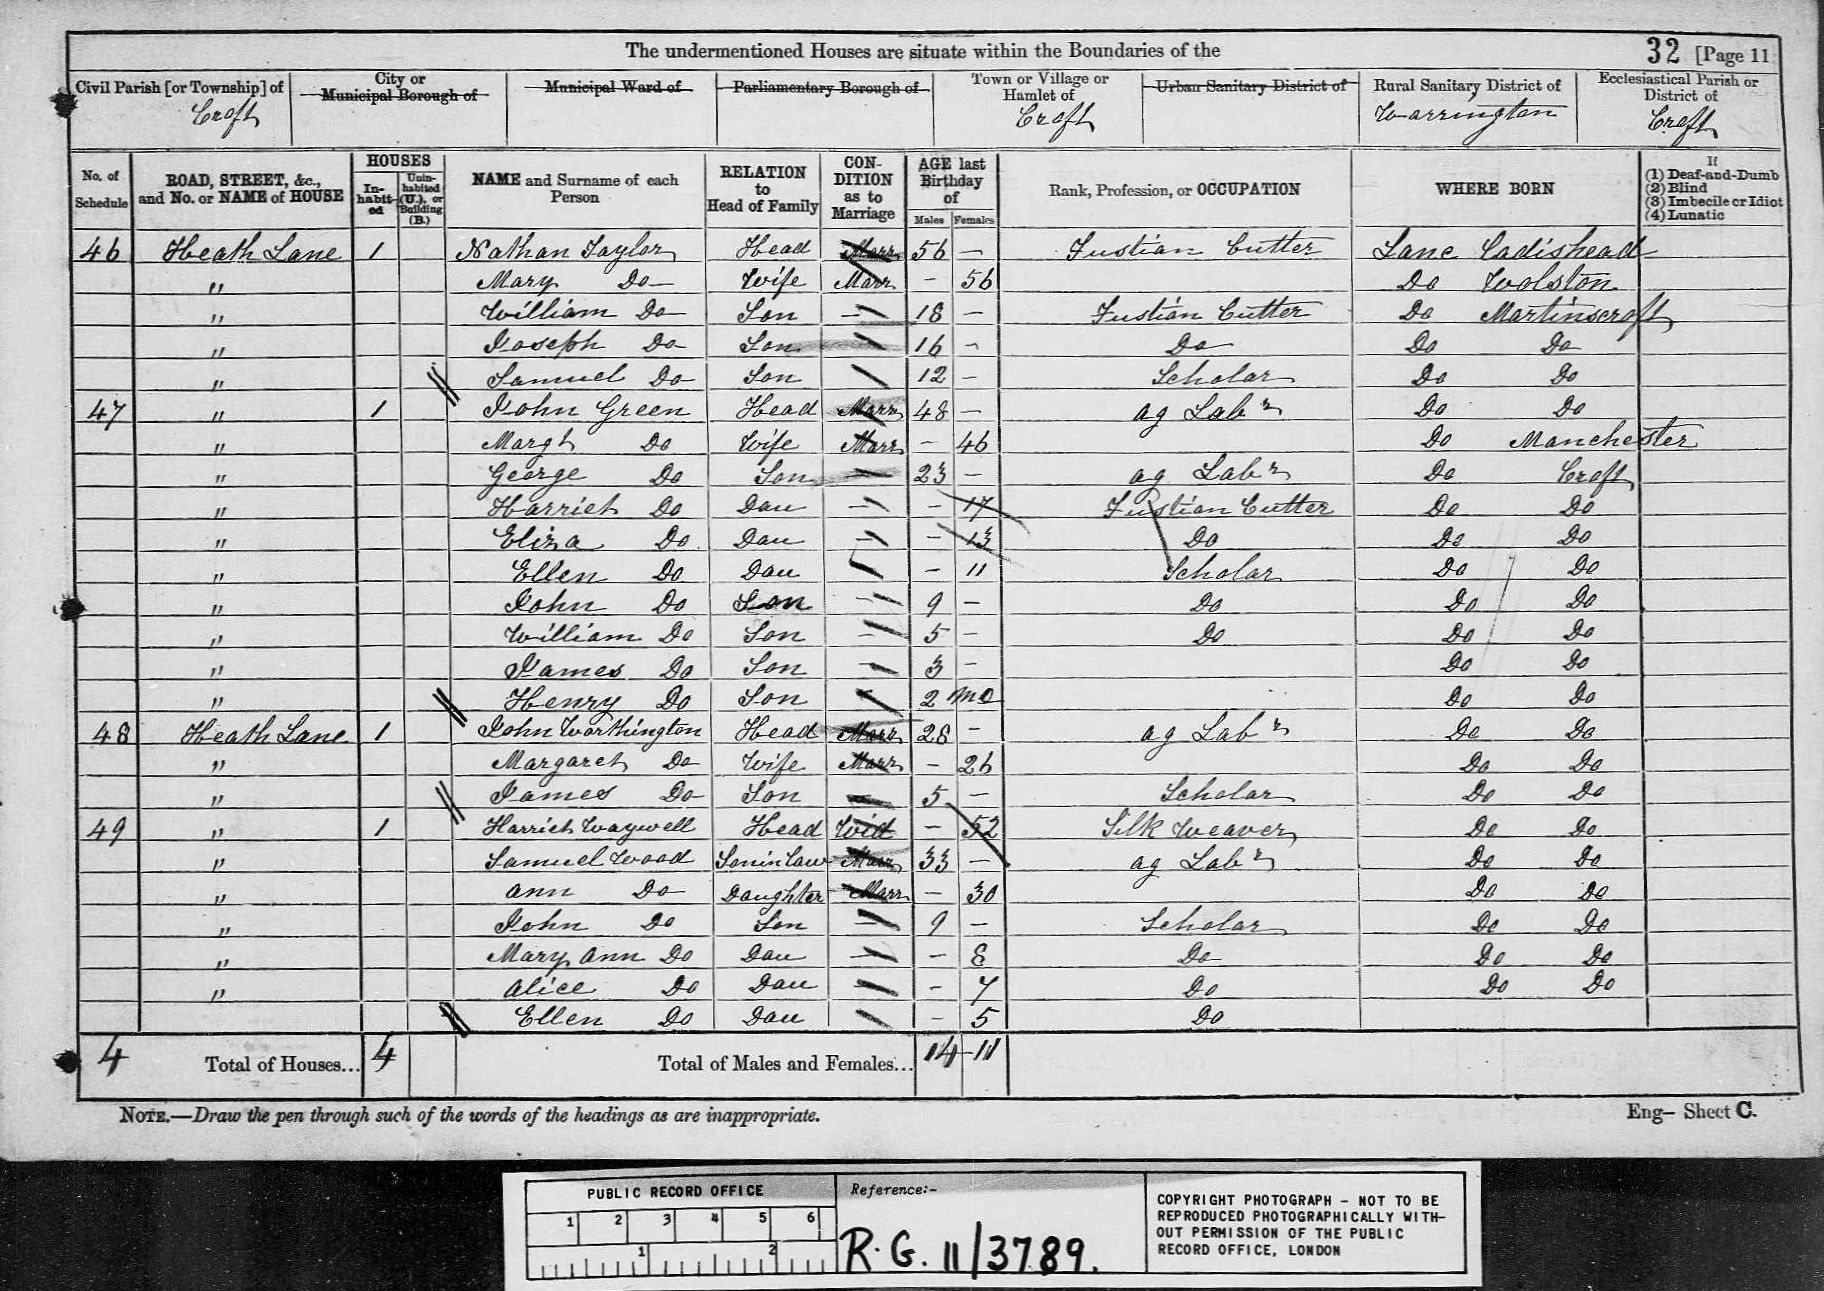 The undermentioned Houses are situate within the Boundaries of the 32 [Page 11
Civil Parish [or Township] of Croft
City or Municipal Borough of
Municipal Ward of
Parliamentary Borough of
Town or Village or Hamlet of Croft
Urban Sanitary District of
Rural Sanitary District of Warrington
Ecclesiastical Parish or District of Croft
No. of Schedule
ROAD, STREET, &c., and No. or NAME of HOUSE
HOUSES
In-habit-ed
Unin-habited (U.), or Building (B.)
NAME and Surname of each Person
RELATION to Head of Family
CON-DITION as to Marriage
AGE last Birthday of
Males Females
Rank, Profession, or OCCUPATION
WHERE BORN
If
(1) Deaf-and-Dumb
(2) Blind
(3) Imbecile or Idiot
(4) Lunatic
46 Heath Lane 1 Nathan Taylor Head Marr 56 — Fustian Cutter Lanc Cadishead
" Mary Do Wife Marr - 56 Do Wolston
" William Do Son — 18 - Fustian Cutter Do Martinscroft
" Joseph Do Son — 16 - Do Do Do
" Samuel Do Son — 12 - Scholar Do Do
47 " 1 John Green Head Marr 48 - ag Labr Do Do
" Margt Do Wife Marr - 46 Do Manchester
" George Do Son — 23 - ag Labr Do Croft
" Harriet Do Dau — - 17 Fustian Cutter Do Do
" Eliza Do Dau — - 13 Do Do Do
" Ellen Do Dau — - 11 Scholar Do Do
" John Do Son — 9 - Do Do Do
" William Do Son — 5 - Do Do Do
" James Do Son — 3 - Do Do
" Henry Do Son — 2 mo Do Do
48 Heath Lane 1 John Worthington Head Marr 28 - ag Labr Do Do
" Margaret Do Wife Marr - 26 Do Do
" James Do Son — 5 - Scholar Do Do
49 " 1 Harriet Waywell Head Wid - 52 Silk Weaver Do Do
" Samuel Wood Son in Law Marr 33 - ag Labr Do Do
" Ann Do Daughter Marr - 30 Do Do
" John Do Son — 9 - Scholar Do Do
" Mary Ann Do Dau — - 8 Do Do Do
" Alice Do Dau — - 7 Do Do Do
" Ellen Do Dau — - 5 Do
4 Total of Houses... 4 Total of Males and Females... 14 11
NOTE.—Draw the pen through such of the words of the headings as are inappropriate.
Eng— Sheet C.
PUBLIC RECORD OFFICE
1 2 3 4 5 6
1 2
Reference:-
R.G. 11/3789.
COPYRIGHT PHOTOGRAPH – NOT TO BE
REPRODUCED PHOTOGRAPHICALLY WITH-
OUT PERMISSION OF THE PUBLIC
RECORD OFFICE, LONDON